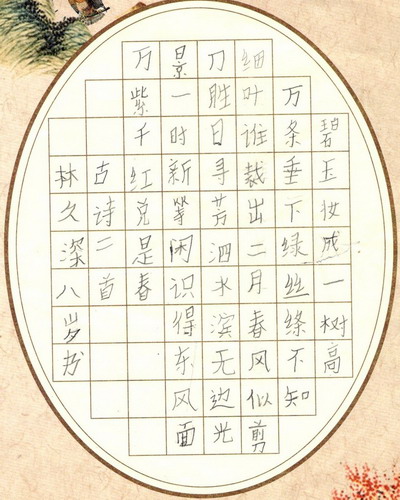 碧玉妆成一树高
万条垂下绿丝绦不知
细叶谁裁出二月春风似剪
刀胜日寻芳泗水滨无边光
景一时新等闲识得东风面
万紫千红总是春
古诗二首
林久深八岁书